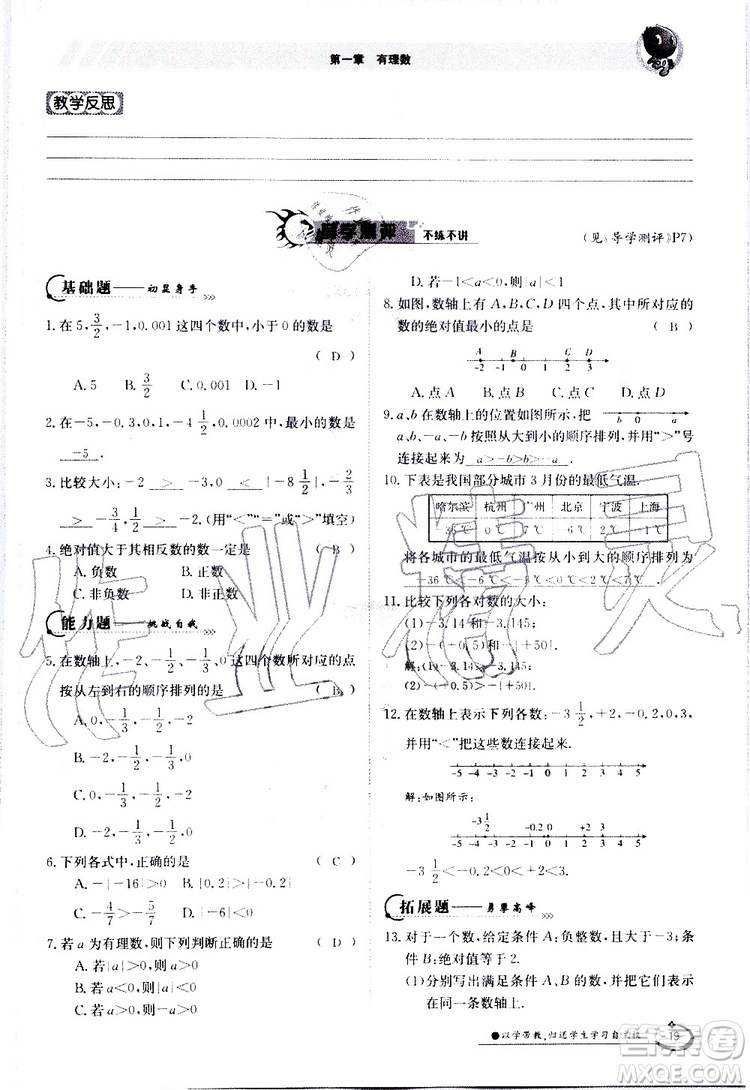 第一章 有理数
教学反思
导学测评 不练不讲
(见《导学测评》P7)
基础题——初显身手
1.在5,3/2,-1,0.001这四个数中,小于0的数是
( D )
A.5 B.3/2 C.0.001 D.-1
2.在-5,-0.3,0,-4 1/2,0.0002中,最小的数是
-5 .
3.比较大小:-2 > -3,0 < |-8|,
< -2.(用“<”“=”或“>”填空)
4.绝对值大于其相反数的数一定是 ( B )
A.负数 B.正数
C.非负数 D.非正数
能力题——挑战自我
5.在数轴上,-2,-1/2,-1/3,0这四个数所对应的点
按从左到右的顺序排列的是 ( D )
A.0,-1/3,-1/2,-2
B.-2,-1/3,-1/2,0
C.0,-1/2,-1/3,-2
D.-2,-1/2,-1/3,0
6.下列各式中,正确的是 ( C )
A.-|-16|>0 B.|0.2|>|-0.2|
C.-4/7>-5/7 D.|-6|<0
7.若a为有理数,则下列判断正确的是 ( D )
A.若|a|>0,则a>0 B.若|a|>0,则a<0
C.若a<0,则-a<0
D.若-1<a<0,则|a|<1
8.如图,数轴上有A,B,C,D四个点,其中所对应的
数的绝对值最小的点是 ( B )
A B C D
-2 -1 0 1 2
A.点A B.点B C.点C D.点D
9.a,b在数轴上的位置如图所示,把
b 0 a
a,b,-a,-b按照从大到小的顺序排列,并用“>”号
连接起来为 a>-b>b>-a .
10.下表是我国部分城市3月份的最低气温.
哈尔滨 杭州 广州 北京 宁波 上海
-36℃ 0℃ 7℃ -6℃ 2℃ -1℃
将各城市的最低气温按从小到大的顺序排列为
-36℃<-6℃<-1℃<0℃<2℃<7℃.
11.比较下列各对数的大小:
(1)-3.14与-3.145;
(2)-(-0.5)与-|+50|.
解:(1)-3.14>-3.145;
(2)-(-0.5)>-|+50|.
12.在数轴上表示下列各数:-3 1/2,+2,-0.2,0,3,
并用“<”把这些数连接起来.
-5 -4 -3 -2 -1 0 1 2 3 4 5
解:如图所示:
-3 1/2 -0.2 0 +2 3
-5 -4 -3 -2 -1 0 1 2 3 4 5
-3 1/2<-0.2<0<+2<3.
拓展题——勇攀高峰
13.对于一个数,给定条件A:负整数,且大于-3;条
件B:绝对值等于2.
(1)分别写出满足条件A、B的数,并把它们表示
在同一条数轴上.
●以学带教,归还学生学习自主权
19
作业精灵